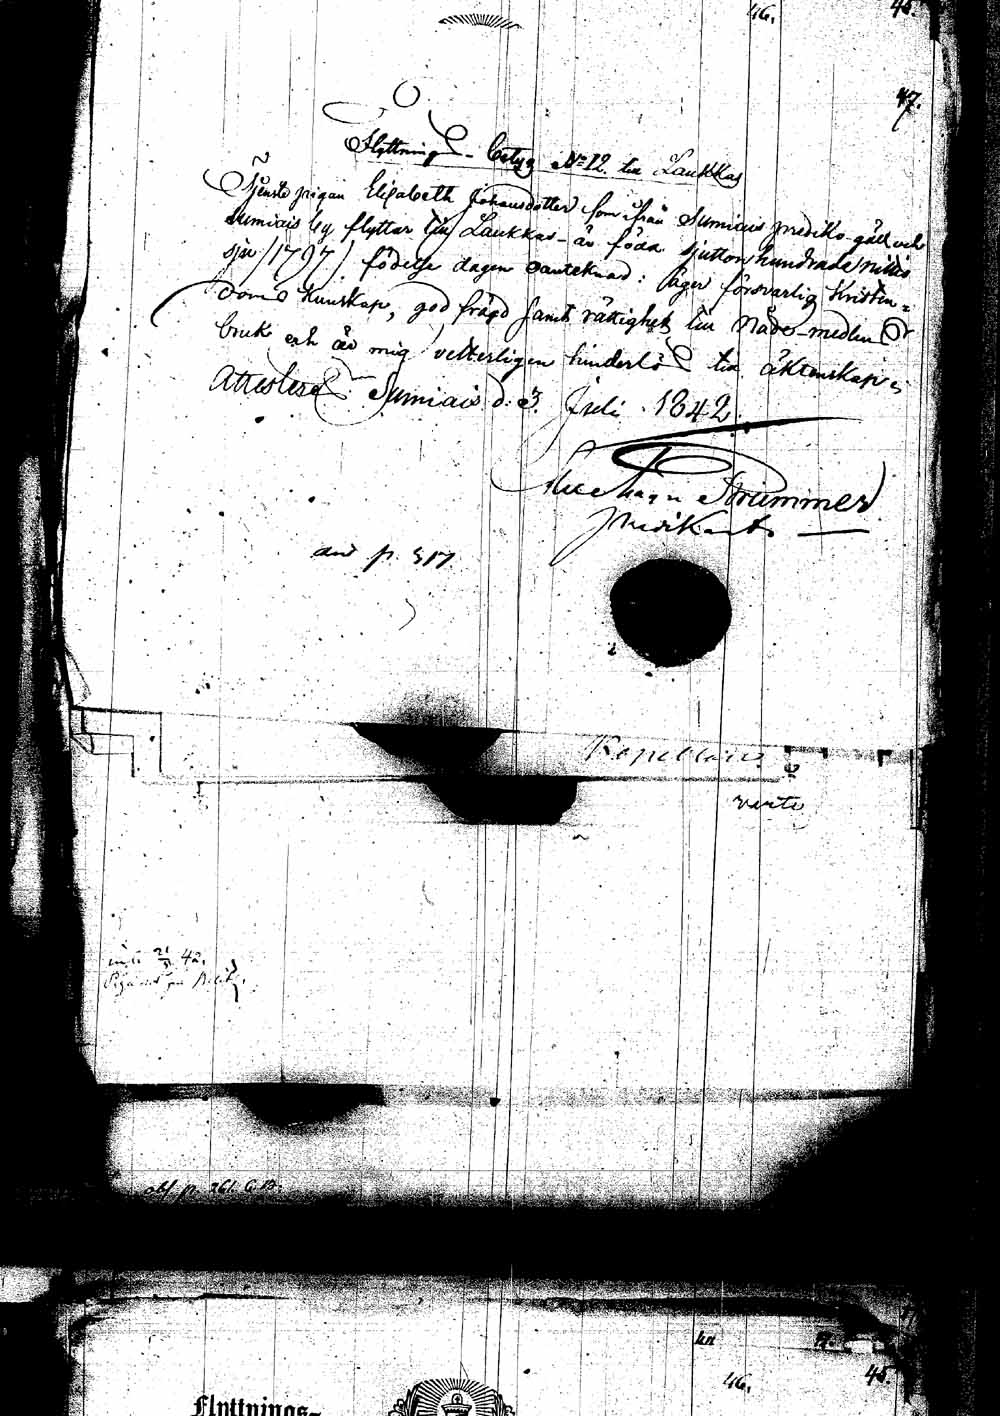 46.
45.
47.
Flyttnings-Betyg No 12. till Laukkas
Tjenste pigan Elisabeth Johansdotter som ifrån Sumiais prediko-gäll och
Sumiais by flyttar till Laukkas är föda sjuttonhundrade nittio
sju /1797/ födelse dagen oantecknad: äger försvarlig Kristen=
doms kunskap, god frägd samt rättighet till Nåde-medlens
bruk och är mig vetterligen hinderlös till äktenskap;
Attesteras Sumiais d. 3. Juli 1842.
Strummer
Predikant.
and p. 517
Kapellans
verte
abf p. 261. G.B.
46.
45.
Flyttnings-